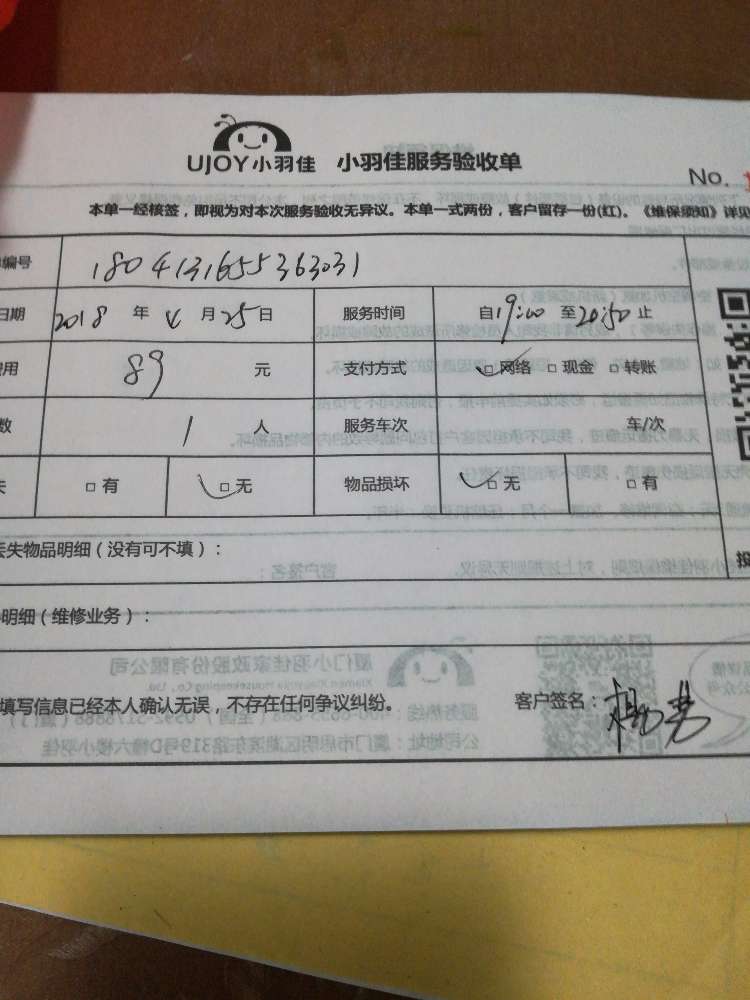 UJOY小羽佳 小羽佳服务验收单
No.
本单一经核签，即视为对本次服务验收无异议。本单一式两份，客户留存一份(红)。《维保须知》详见
编号 180413165536303​1
日期 2018 年 4 月 25 日 服务时间 自 19:00 至 20:50 止
用 89 元 支付方式 □ 网络 □ 现金 □ 转账
数 1 人 服务车次 车/次
失 □ 有 □ 无 物品损坏 □ 无 □ 有
丢失物品明细（没有可不填）：
明细（维修业务）：
填写信息已经本人确认无误，不存在任何争议纠纷。 客户签名：